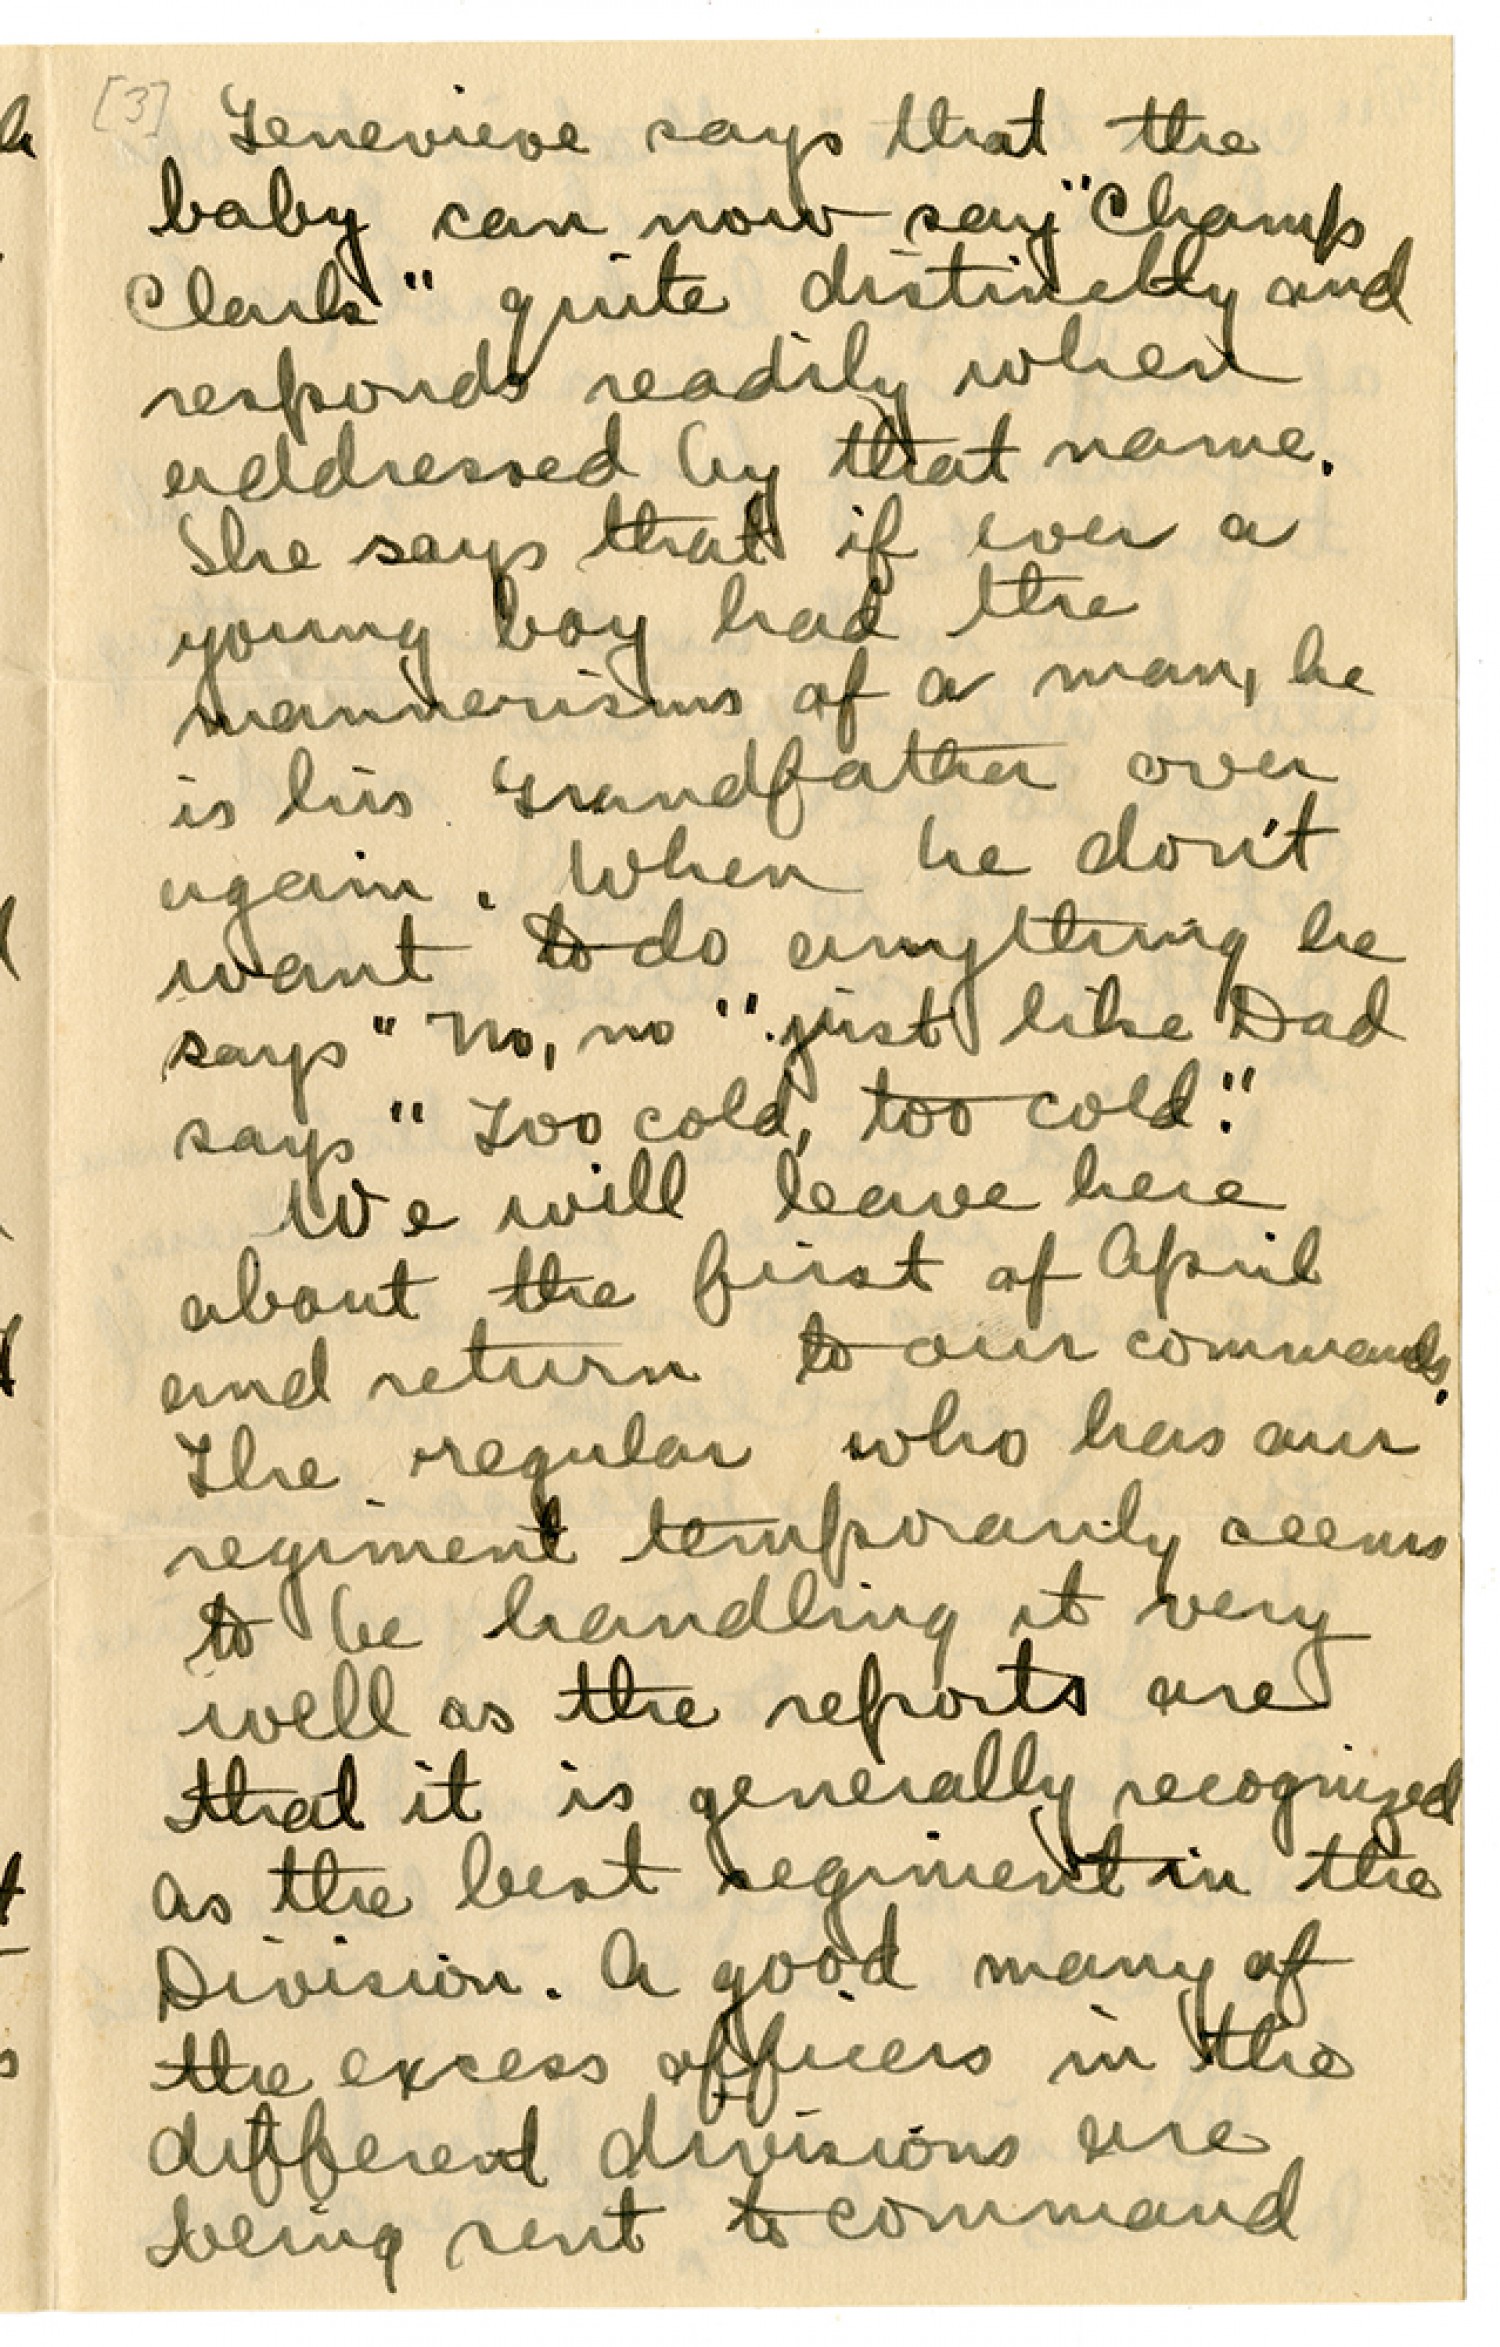 [3]
Genevieve says that the
baby can now say "Champ
Clark" quite distinctly and
responds readily when
addressed by that name.
She says that if ever a
young boy had the
mannerisms of a man, he
is his Grandfather over
again. When he don't
want to do anything he
says "No, no" just like Dad
says "Too cold, too cold."
We will leave here
about the first of April
and return to our commands.
The regular who has our
regiment temporarily seems
to be handling it very
well as the reports are
that it is generally recognized
as the best regiment in the
Division. A good many of
the excess officers in the
different divisions are
being sent to command